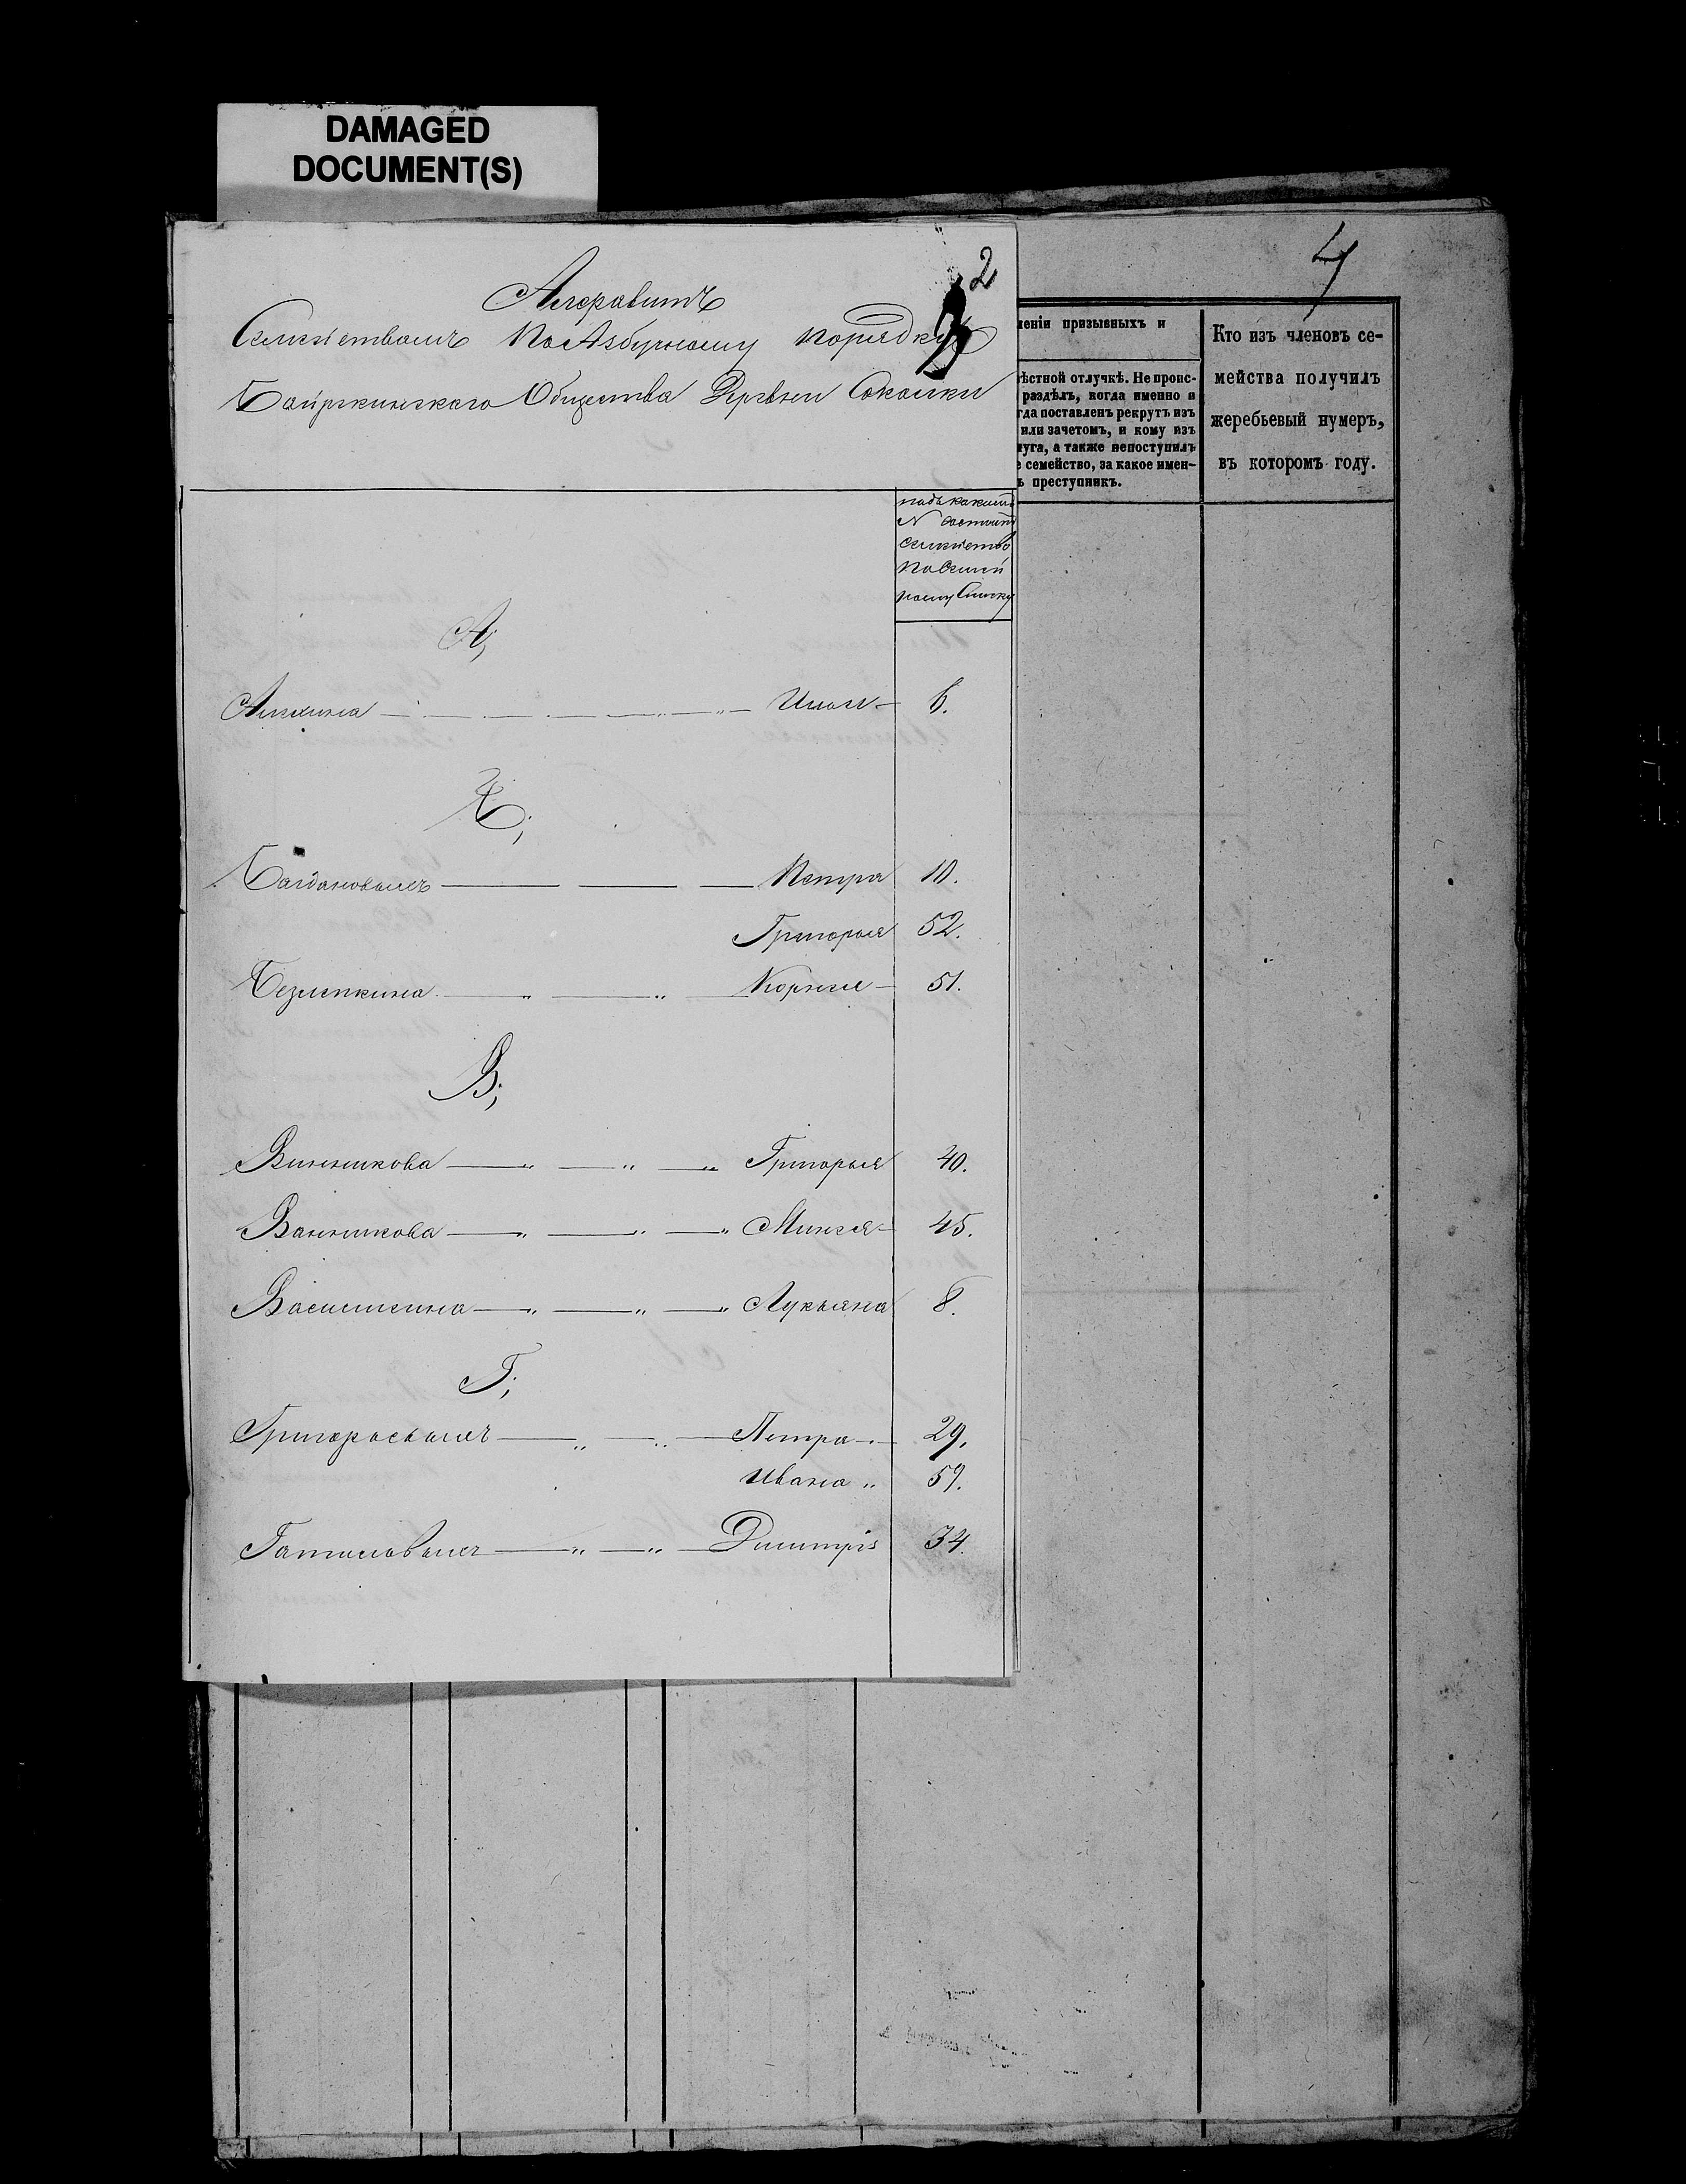 DAMAGED
DOCUMENT(S)
4
2
Алфавитъ
Семействамъ По Азбучному порядку
Байркинскаго Общества Деревни Соколки
подъ какимъ
N состоитъ
семейство
по Семей
ному Списку
А;
Алехина Ильи 6.
Б;
Багдановыхъ Петра 10.
Григорья 52.
Безлепкина Корнея 51.
В;
Винникова Григорья 40.
Ванникова Минея 45.
Василисина Лукьяна 8.
Г;
Григорьевыхъ Петра 29.
Ивана 59.
Димитрія 34.
леніи призывныхъ и
ѣстной отлучкѣ. Не проис-
раздѣлъ, когда именно и
гда поставленъ рекрутъ изъ
или зачетомъ, и кому изъ
луга, а также непоступилъ
е семейство, за какое имен-
ъ преступникъ.
Кто изъ членовъ се-
мейства получилъ
жеребьевый нумеръ,
въ которомъ году.